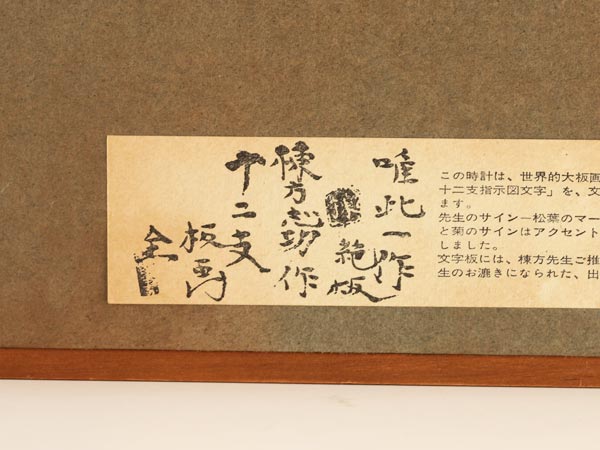 唯此一作
範板
棟方志功作
十二支
板画
全
この時計は、世界的大板画
十二支指示図文字」を、文
ます。
先生のサイン―松葉のマー
と菊のサインはアクセント
しました。
文字板には、棟方先生ご推
生のお漉きになられた、出